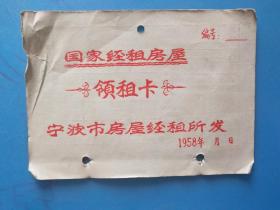 编号:
国家经租房屋
领租卡
宁波市房屋经租所发
1958年 月 日